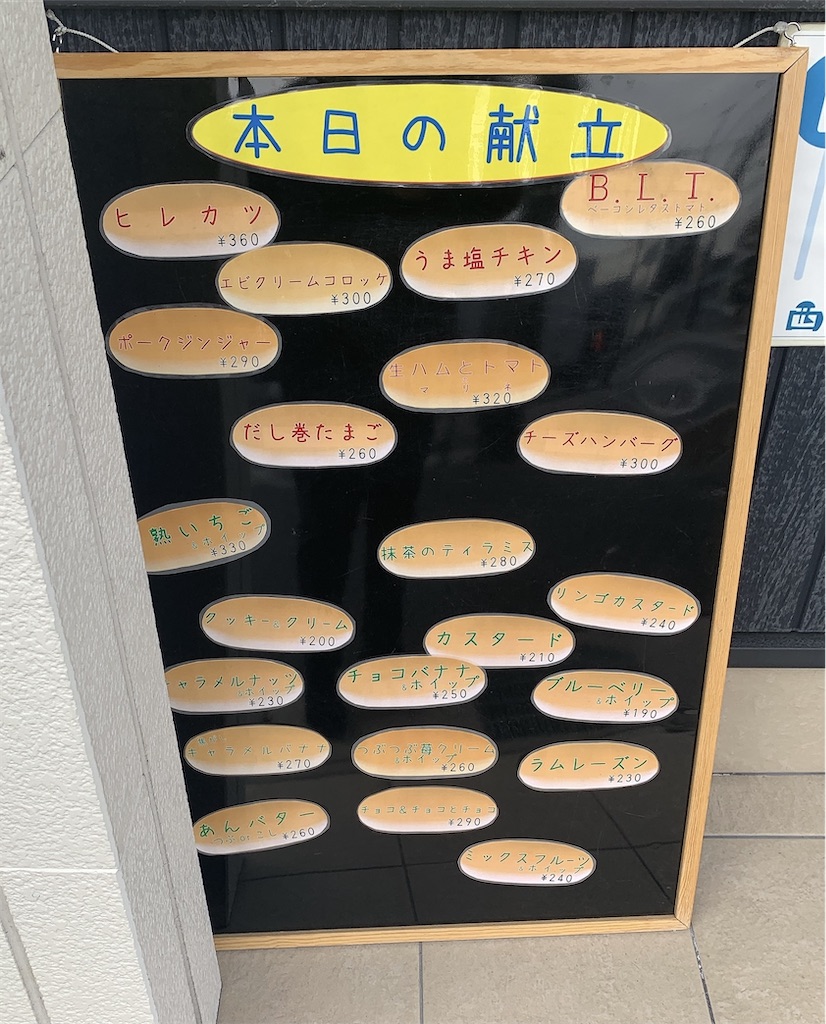 本日の献立
B.L.T.
ベーコンレタストマト
¥260
ヒレカツ
¥360
うま塩チキン
¥270
エビクリームコロッケ
¥300
ポークジンジャー
¥290
生ハムとトマト
マリネ
¥320
だし巻たまご
¥260
チーズハンバーグ
¥300
熟いちご
&ホイップ
¥330
抹茶のティラミス
¥280
リンゴカスタード
¥240
クッキー&クリーム
¥200
カスタード
¥210
キャラメルナッツ
&ホイップ
¥230
チョコバナナ
&ホイップ
¥250
ブルーベリー
&ホイップ
¥190
キャラメルバナナ
¥270
つぶつぶ苺クリーム
&ホイップ
¥260
ラムレーズン
¥230
あんバター
つぶorこし ¥260
チョコ&チョコとチョコ
¥290
ミックスフルーツ
&ホイップ
¥240
西